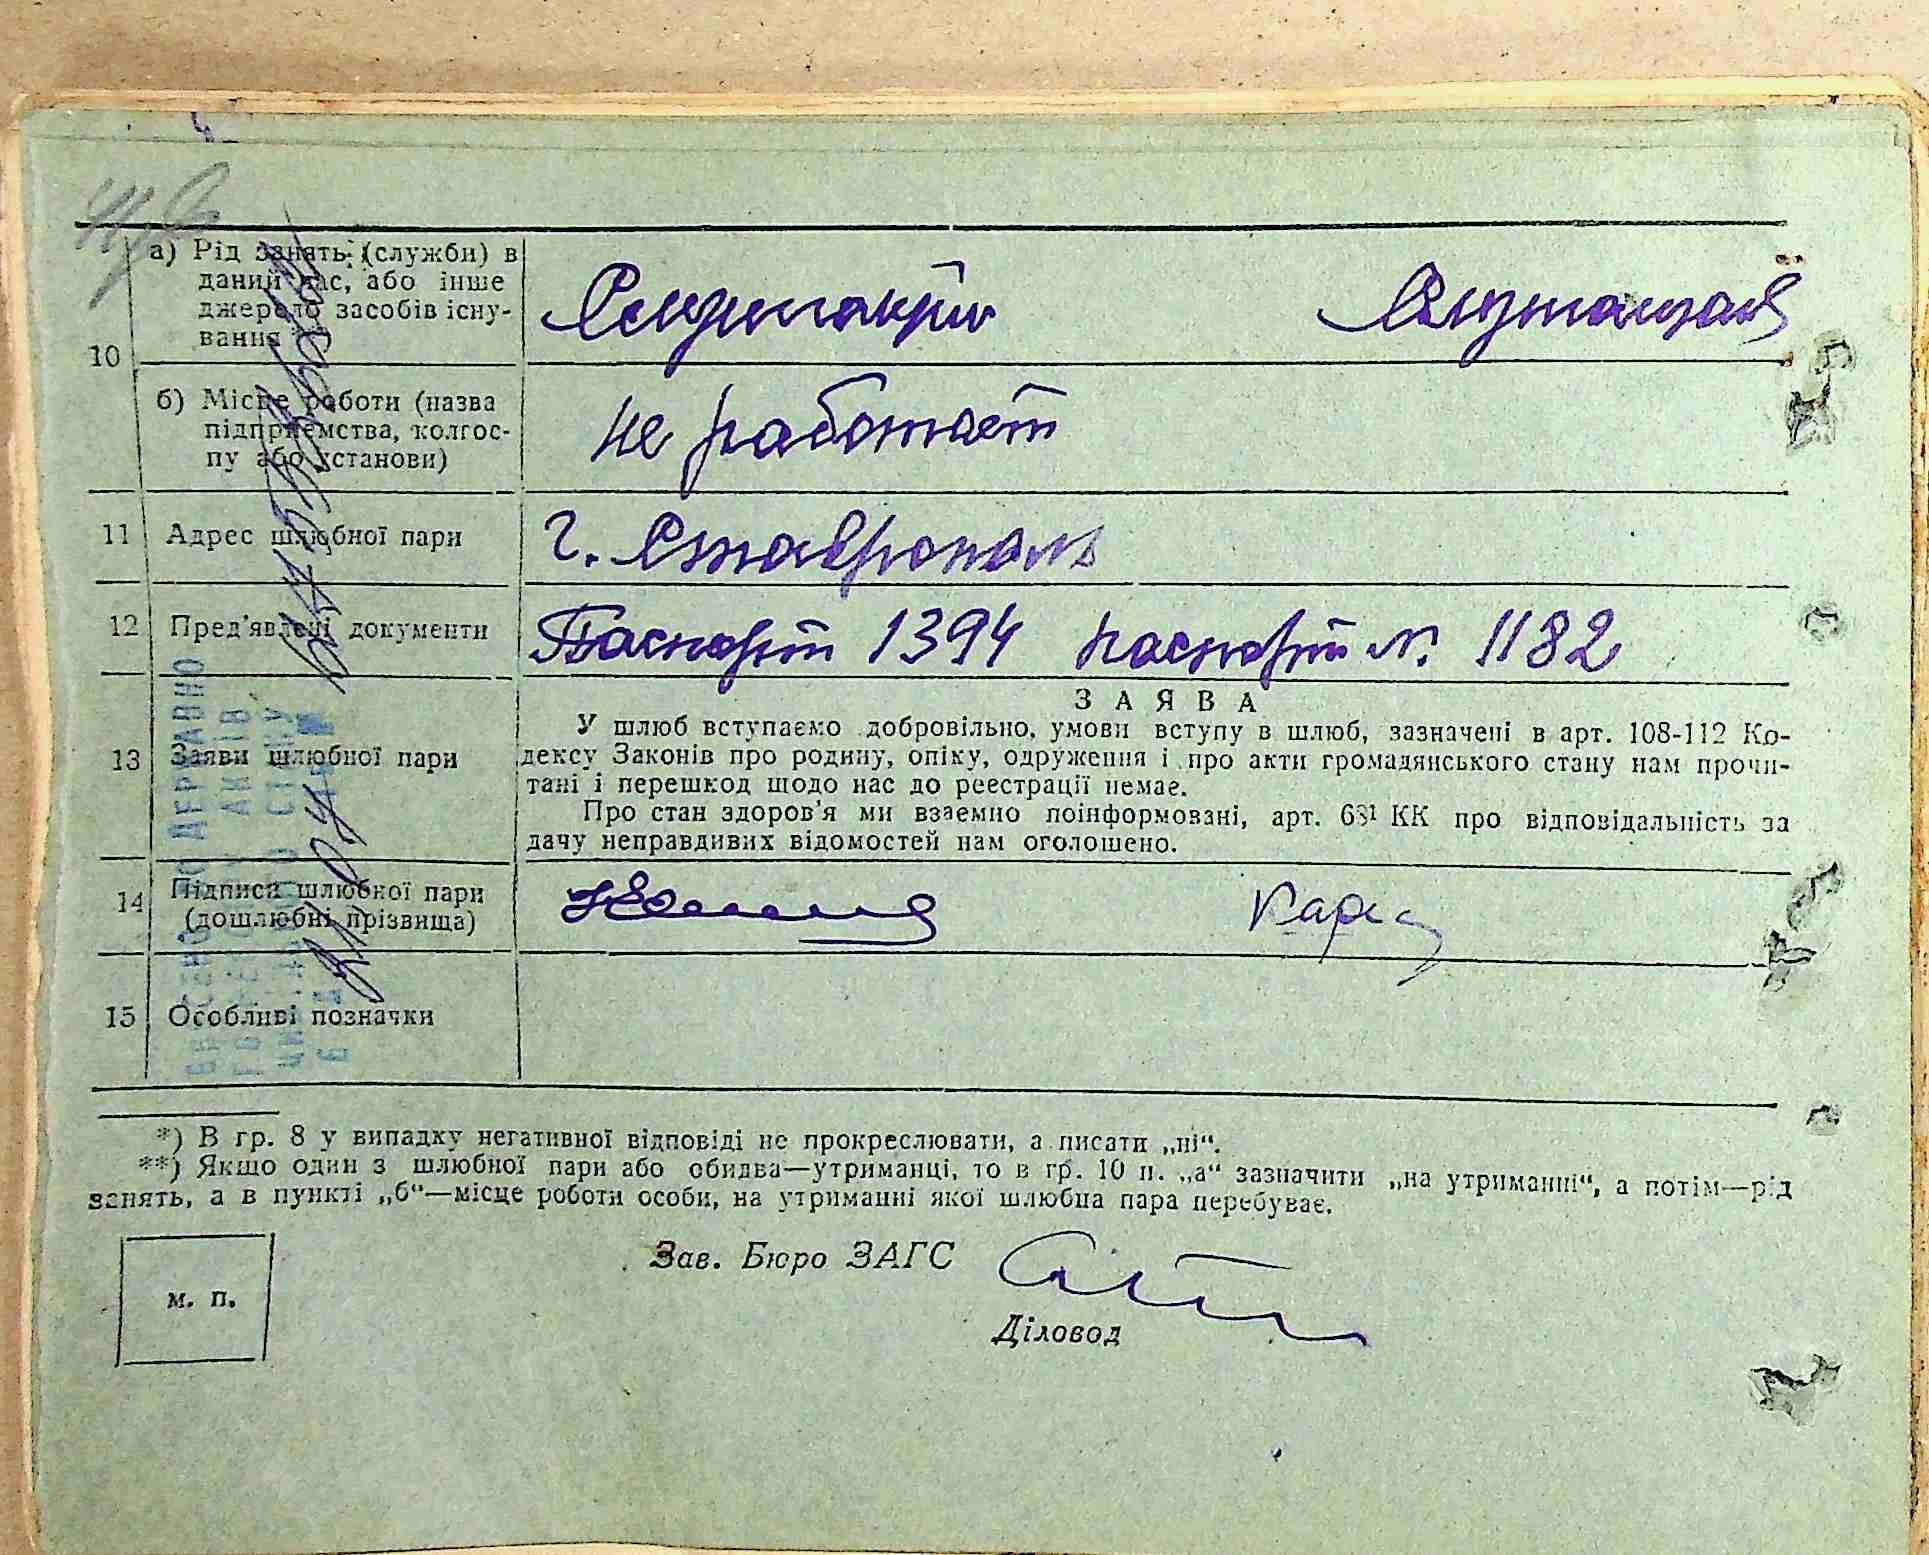 10
а) Рід занять (служби) в
даний час, або інше
джерело засобів існу-
вання
Служащая
б) Місце роботи (назва
підприємства, колгос-
пу або установи)
не работает
11 Адрес шлюбної пари
г. Ставрополь
12 Пред'явлені документи
Паспорт 1394 паспорт №. 1182
13 Заяви шлюбної пари
ЗАЯВА
У шлюб вступаємо добровільно, умови вступу в шлюб, зазначені в арт. 108-112 Ко-
дексу Законів про родину, опіку, одруження і про акти громадянського стану нам прочи-
тані і перешкод щодо нас до реестрації немає.
Про стан здоров'я ми взаємно поінформовані, арт. 68¹ КК про відповідальність за
дачу неправдивих відомостей нам оголошено.
14 Підписи шлюбної пари
(дошлюбні прізвища)
15 Особливі позначки
*) В гр. 8 у випадку негативної відповіді не прокреслювати, а писати „ні“.
**) Якщо один з шлюбної пари або обидва—утриманці, то в гр. 10 п. „а“ зазначити „на утриманні“, а потім—рід
занять, а в пункті „б“—місце роботи особи, на утриманні якої шлюбна пара перебуває.
Зав. Бюро ЗАГС
м. п.
Діловод